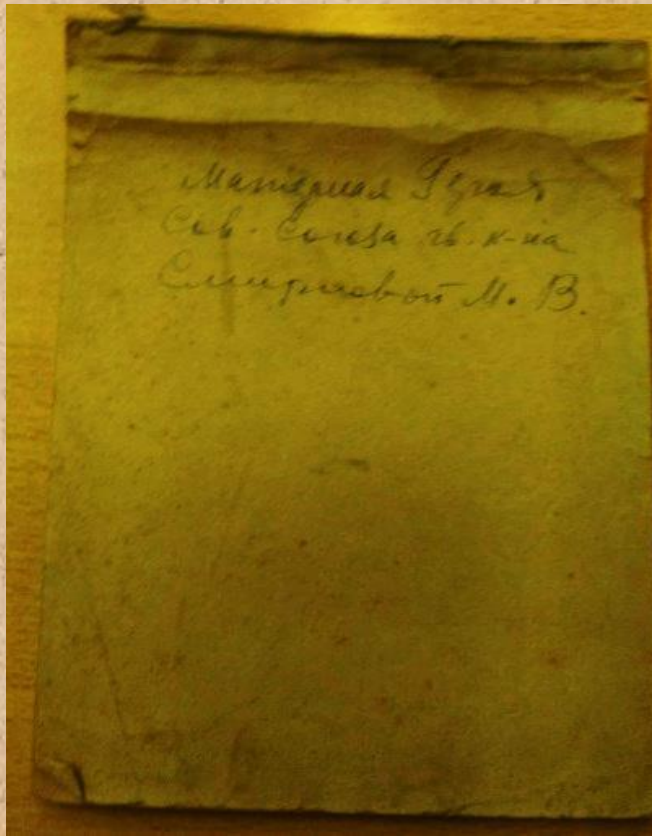 Материал Героя
Сов. Союза гв. к-на
Смирновой М. В.